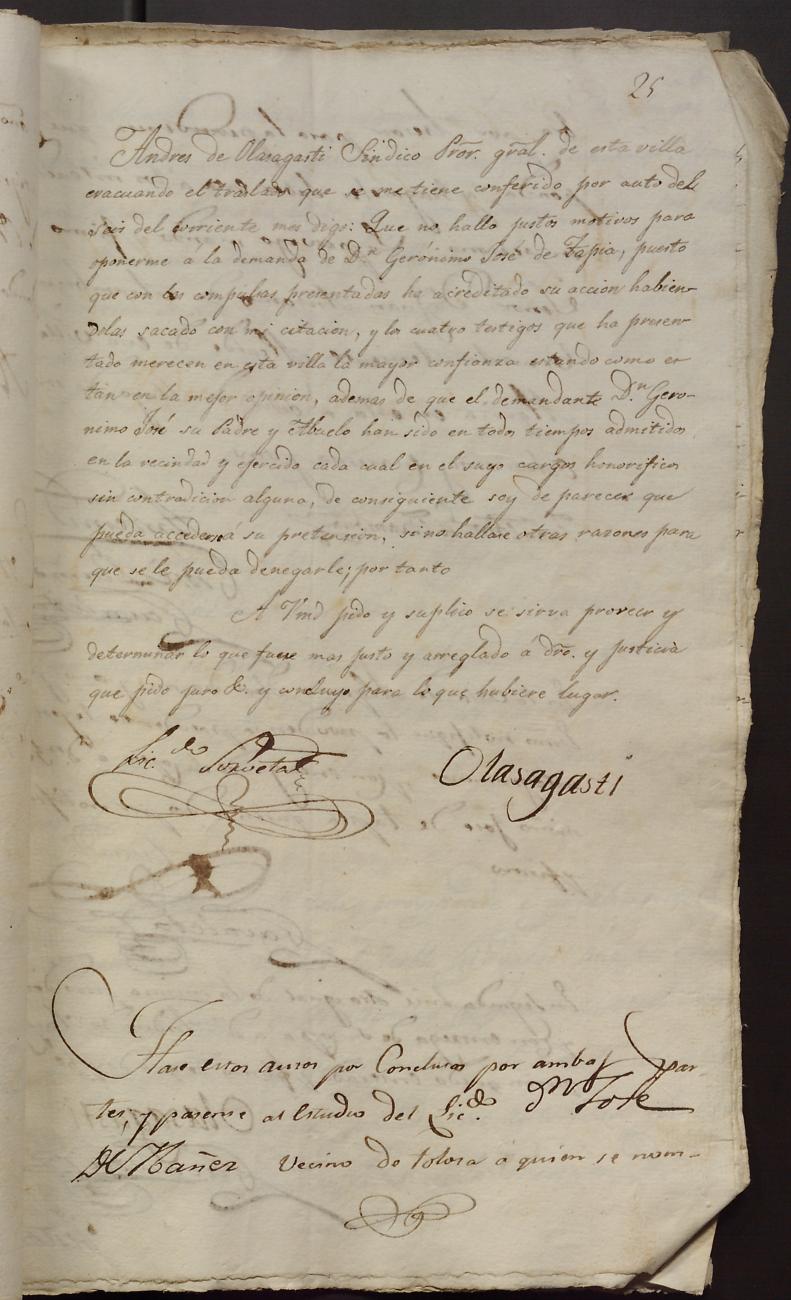 25
Andres de Olasagasti Sindico Pror. gral. de esta villa
evacuando el traslado que se me tiene conferido por auto del
seis del corriente mes digo: Que no hallo justos motivos para
oponerme á la demanda de Dn. Gerónimo José de Zapia, puesto
que con las compulsas presentadas ha acreditado su accion habien-
dolas sacado con mi citacion, y los cuatro testigos que ha presen-
tado merecen en esta villa la mayor confianza estando como es
tan en la mejor opinion, ademas de que el demandante Dn. Gero-
nimo José su Padre y Abuelo han sido en todos tiempos admitidos
en la vecindad y ejercido cada cual en el suyo cargos honorificos
sin contradicion alguna, de consiguiente soy de parecer que
pueda accederse á su pretension, si no hallase otras razones para
que se le pueda denegarle; por tanto
A Vmd pido y suplico se sirva proveer y
determinar lo que fuere mas justo y arreglado á dro. y justicia
que pido juro &. y concluyo para lo que hubiere lugar.
Lic.do Olasagasti
estos autos por Conclusos por ambas par-
tes, y pasense al Estudio del Lic.do Dn Jose
De Ybañez Vecino de Tolosa a quien se nom-